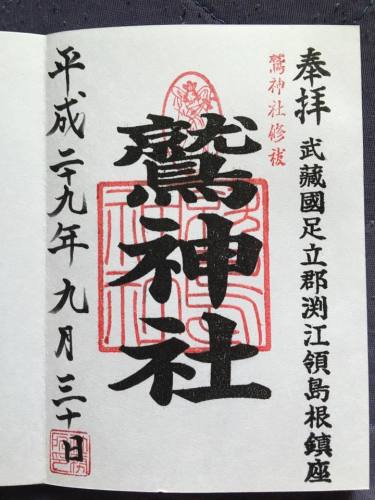 奉拝 武藏國足立郡渕江領島根鎮座
鷲神社修祓
鷲神社
平成二十九年九月三十日